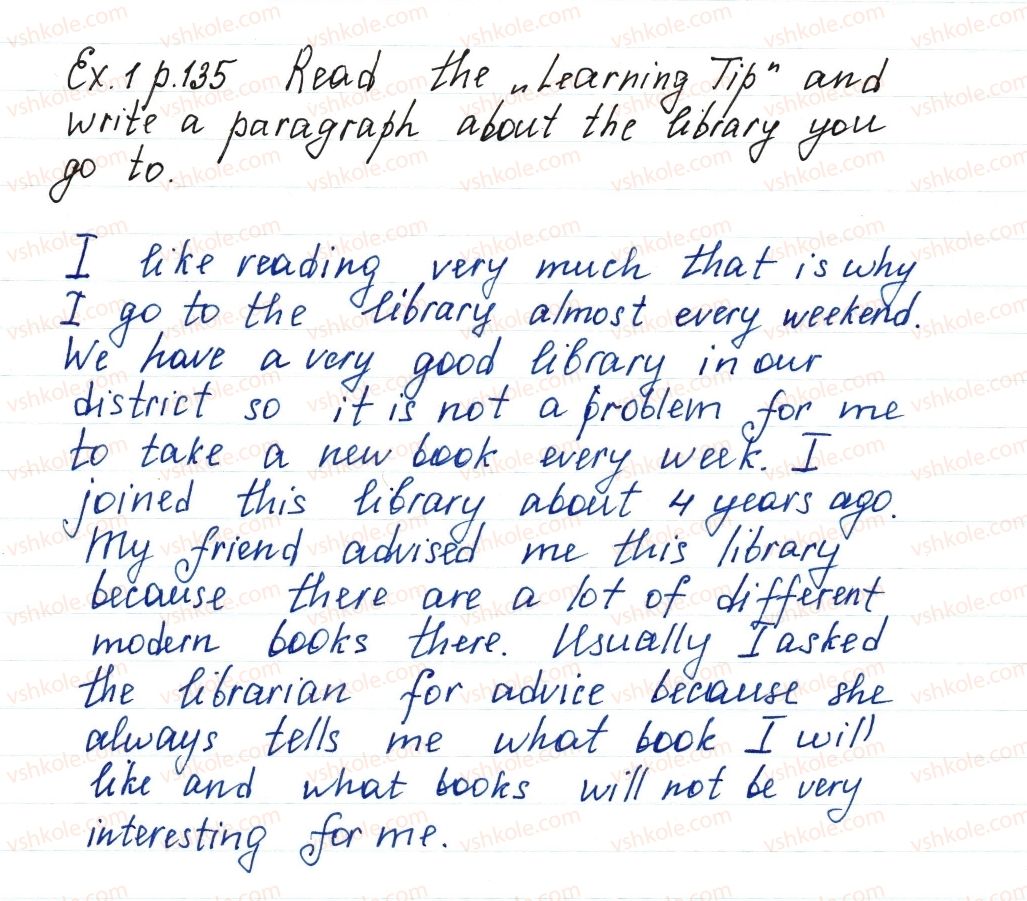 Ex. 1 p.135 Read the „Learning Tip" and
write a paragraph about the library you
go to.
I like reading very much that is why
I go to the library almost every weekend.
We have a very good library in our
district so it is not a problem for me
to take a new book every week. I
joined this library about 4 years ago.
My friend advised me this library
because there are a lot of different
modern books there. Usually I asked
the librarian for advice because she
always tells me what book I will
like and what books will not be very
interesting for me.